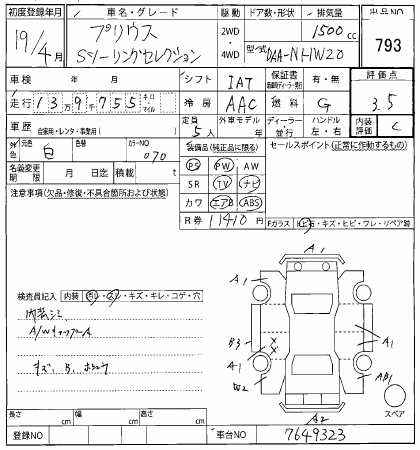 初度登録年月 車名・グレード 駆動 ドア数・形状 排気量 出品NO
19/4月 プリウス 2WD・4WD 1500cc 793
Sツーリングセレクション 型式 DAA-NHW20
車検 年 月 シフト IAT 保証書 有・無 評価点
走行 139755 キロ・マイル 冷房 AAC 燃料 G 3.5
車歴 自家用・レンタ・事業用( ) 定員 5人 外車モデル 年 ディーラー・並行 ハンドル 左・右 内装評価 C
外色 元色 白 色替 カラーNO 070 装備品(純正品に限る) セールスポイント(正常に作動するもの)
名義変更期限 月 日迄 積載 t PS PW AW
注意事項(欠品・修復・不具合箇所および状態) SR TV ナビ
カワ エアB ABS
R券 11410円 Fガラス 石・キズ・ヒビ・ワレ・リペア跡
A1
A1
検査員記入 内装 汚レ・スレ・キズ・キレ・コゲ・穴
内装シミ
B3 A1
A1
キズ、B、
W2 AB1
スペア
A2
長さ cm 幅 cm 高さ cm
登録NO 車台NO 7649323